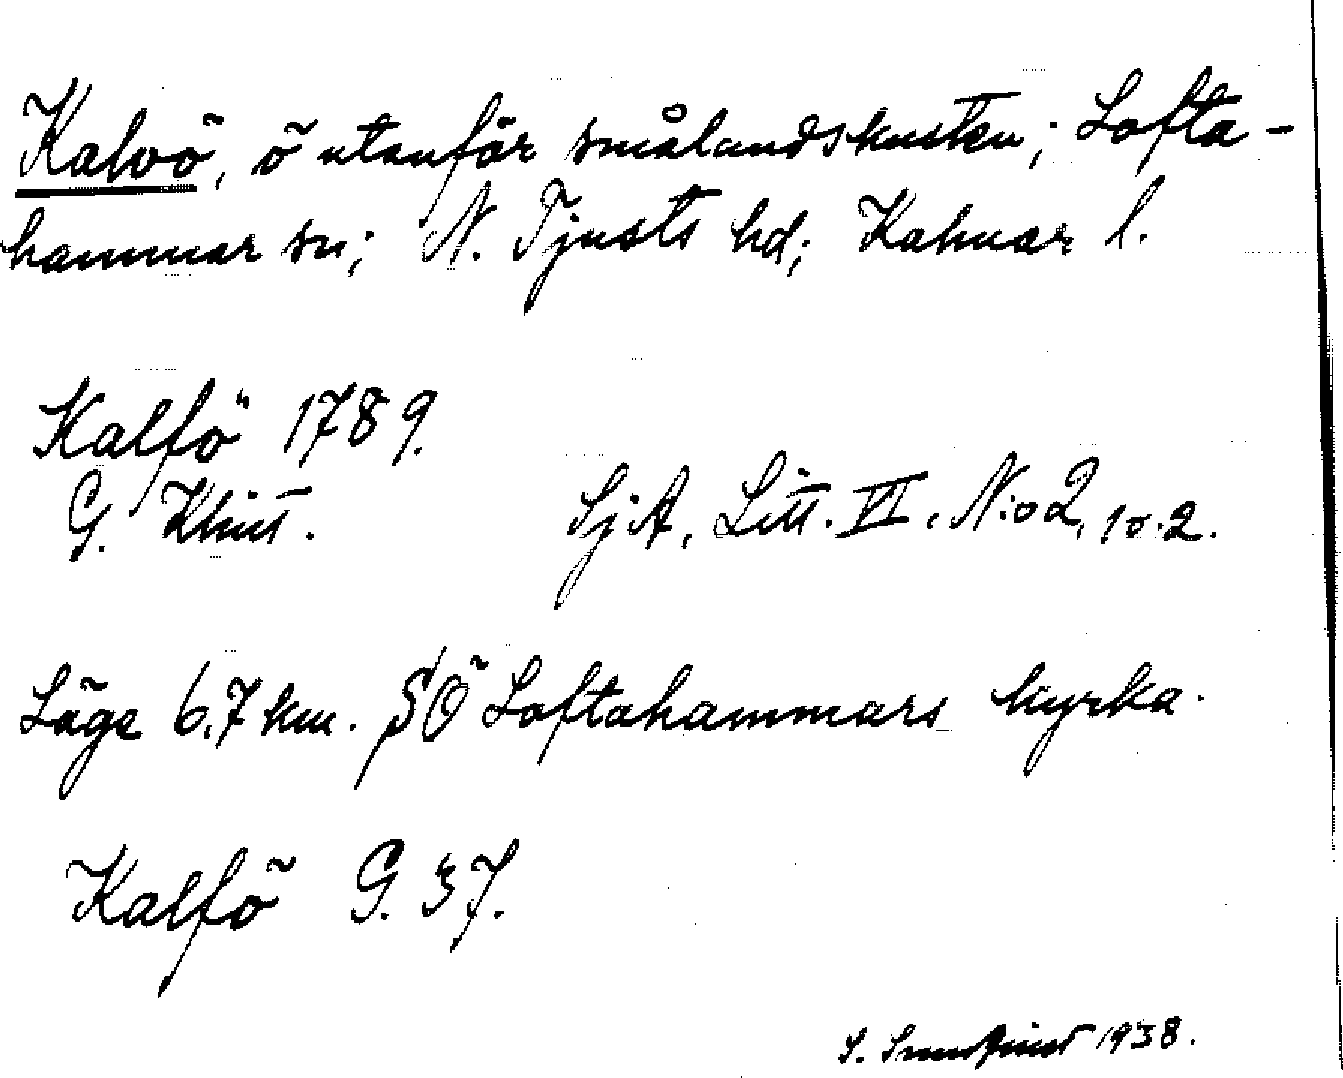 Kalvö, ö utanför smålandskusten; Lofta-
hammar sn; N. Tjusts hd; Kalmar l.
Kalfö 1789.
G. Klint. SjA, Litt. VI. N:o 2, 10.2.
Läge 6.7 km. SÖ Loftahammars kyrka.
Kalfö G. 37.
S. 1938.